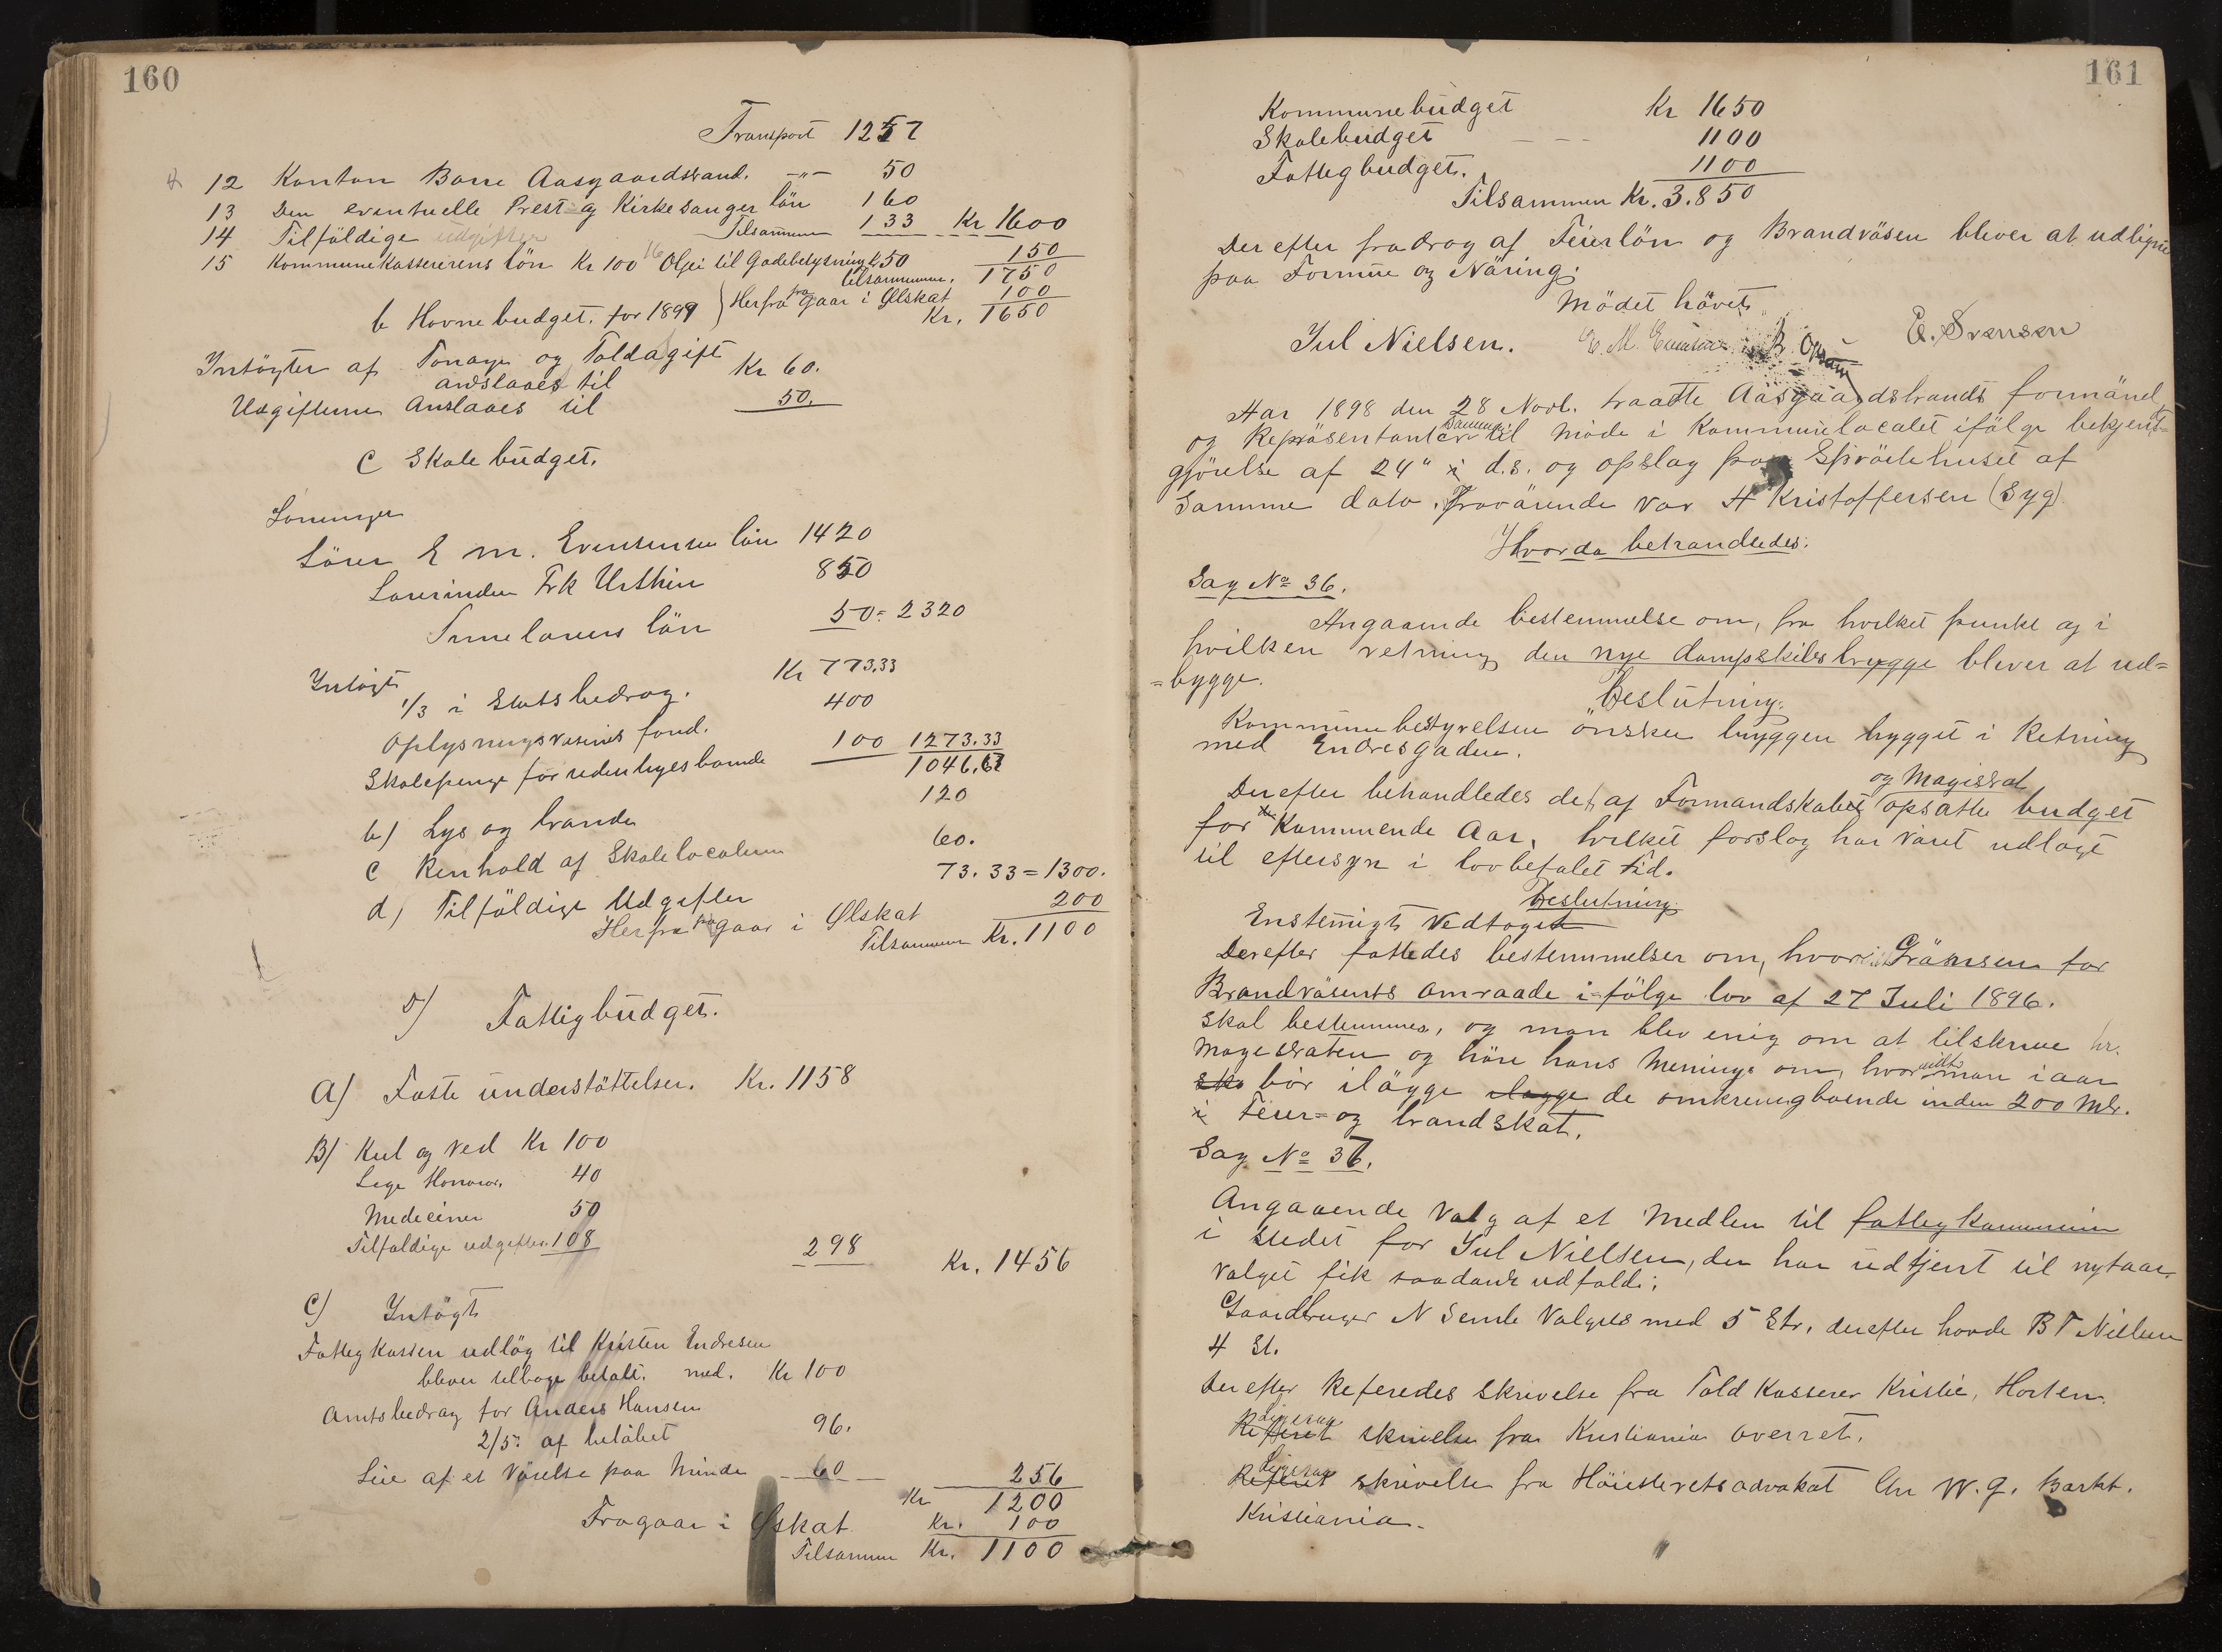 160
Transport 1257
12 Konton Borre Aasgaardstrand. -"- 50
13 Den eventuelle Prest- og Kirkesanger lön 160
14 Tilföldige udgifter Tilsammen 133 Kr 1600
15 Kommunekassererens lön Kr 100 16 Olje til Gadebelysning k 50 150
tilsammen. 1750
b Havnebudget. for 1899 } Herfra fra gaar i Ølskat 100
Kr. 1650
Intögter af Tonage og Toldagift
anslaaes til Kr 60.
Udgifterne Anslaaes til 50.
C Skolebudget.
Lönninger
Lärer E M. Evensens lön 1420
Lärerinden Frk Urthin 850
Timelärers lön 50 = 2320
Intögt
1/3 i Statsbedrag. Kr 773.33
Oplysningsväsenets fond. 400
Skolepenge for udenbyesbarnde 100 1273.33
1046.67
b) Lys og brande 120
C Renhold af Skolelocalerne 60.
d) Tilföldige Udgifter 73.33 = 1300.
Herfra fra gaar i Ølskat 200
Tilsammen Kr. 1100
D) Fattigbudget.
A) Faste understöttelser. Kr. 1158
B) Kul og Ved Kr 100
Lege Honorar. 40
Mediciner 50
Tilfäldige udgifter 108
298 Kr. 1456
C) Intögt
Fattigkassen udlög til Kristen Endresen
bliver tilbage betalt. med. Kr 100
Amtsbedrag for Anders Hansen
2/5: af belöbet 96.
Leie af et Värelse paa Minde 60 256
Kr 1200
Fragaar i Ølskat Kr. 100
Tilsammen Kr. 1100
161
Kommunebudget Kr 1650
Skolebudget - - - 1100
Fattigbudget. 1100
Tilsammen Kr. 3.850
Derefter fradrag af Feierlön og Brandväsen bliver at udligne
paa Formue og Näring.
Mödet hävet.
Jul Nielsen. E. M. Evensen B. Opsam E. Svensen
Aar 1898 den 28 Novb. traatte Aasgaardstrands formänd
og Repräsentanter Sammen til Möde i Kommunelocalet ifölge bekjent=
gjörelse af 24" i d.s. og opslag paa Spröitehuset af
Samme dato. Fraværende var H Kristoffersen (Syg)
Hvorda behandledes.
Sag No 36.
Angaaende bestemmelse om, fra hvilket punkt og i
hvilken retning den nye dampskibsbrygge bliver at ud=
=bygge.
Beslutning.
Kommunebestyrelsen önsker bryggen bygget i Retning
med Endresgaden.
Derefter behandledes det af Formandskabet og Magistrat opsatte budget
for det Kommende Aar, hvilket forslag har väret udlagt
til eftersyn i lovbefalet tid.
Beslutning
Enstemigt Vedtaget
Derefter fattedes bestemmelser om, hvor Gränsen for
Brandväsents omraade i fölge lov af 27 Juli 1896.
skal bestemmes, og man blev enig om at tilskrive hr.
Magestraten og höre hans Mening om, hvorvidt man i aar
sko bör ilägge ilagge de omkringboende inden 200 Mtr.
i Feier- og brandskat.
Sag No 37.
Angaaende Valg af et Medlem til fattigkommisin
i stedet for Jul Nielsen, der har udtjent til nytaar,
Valget fik saadant udfald:
Gaardbruger N Semb Valgtes med 5 Str, derefter havde B T Nielsen
4 St.
Derefter Referedes skrivelse fra Told Kasserer Kristie, Horten.
Referet Ligesaa skrivelse fra Kristiania Overret.
Referet Ligesaa skrivelse fra Höiesteretsadvokat Chr W. G. Barkt.
Kristiania.